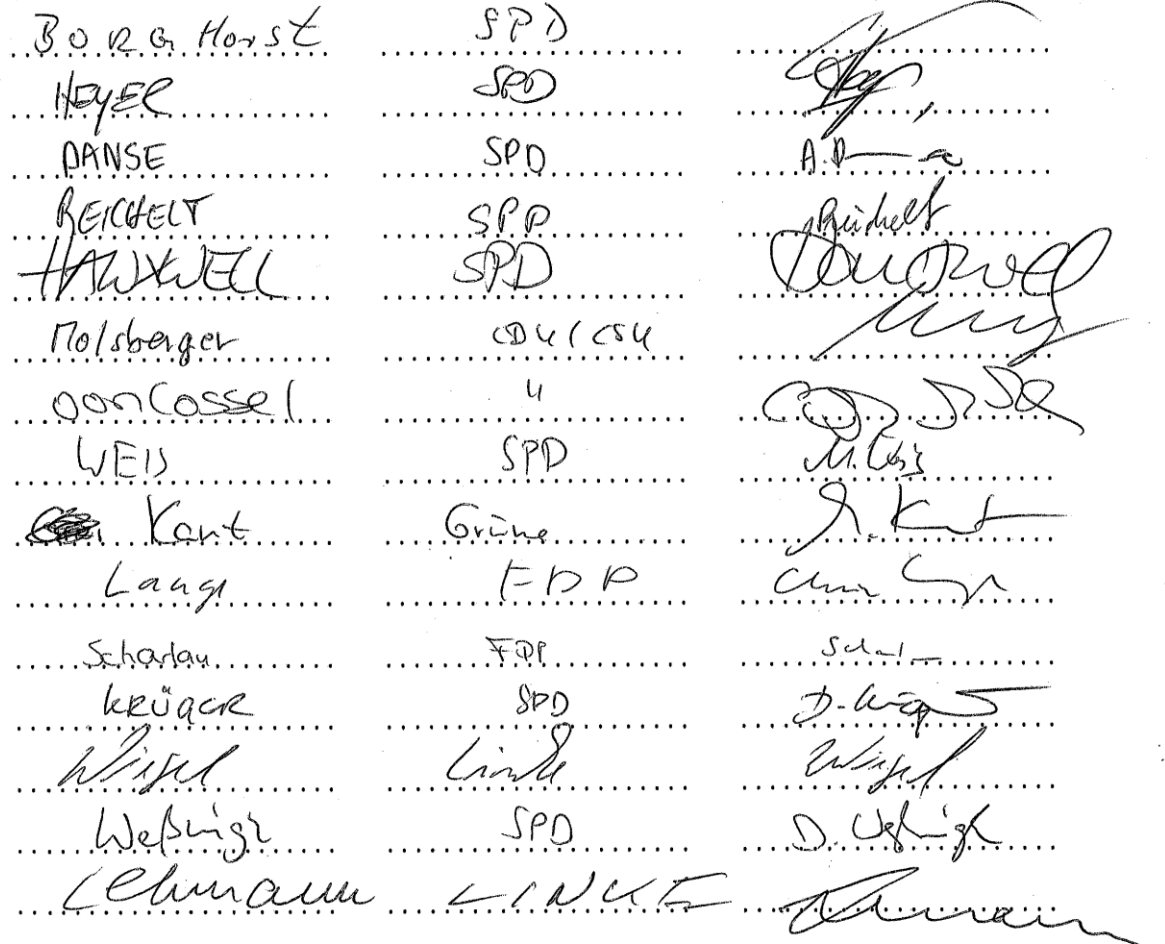 BORG Horst SPD
HEYEL SPD
DANSE SPD A. D
REICHELT SPD Reichelt
HAWXWELL SPD Hawxwell
Molsberger CDU/CSU
von Cossel "
WEIS SPD M. Weis
Kant Grüne S. Kant
Lange FDP
Scharlau FDP
KRÜGER SPD D. Krüger
Wiesel Linke Wiesel
Weßnigk SPD D. Weßnigk
Lehmann LINKE Lehmann